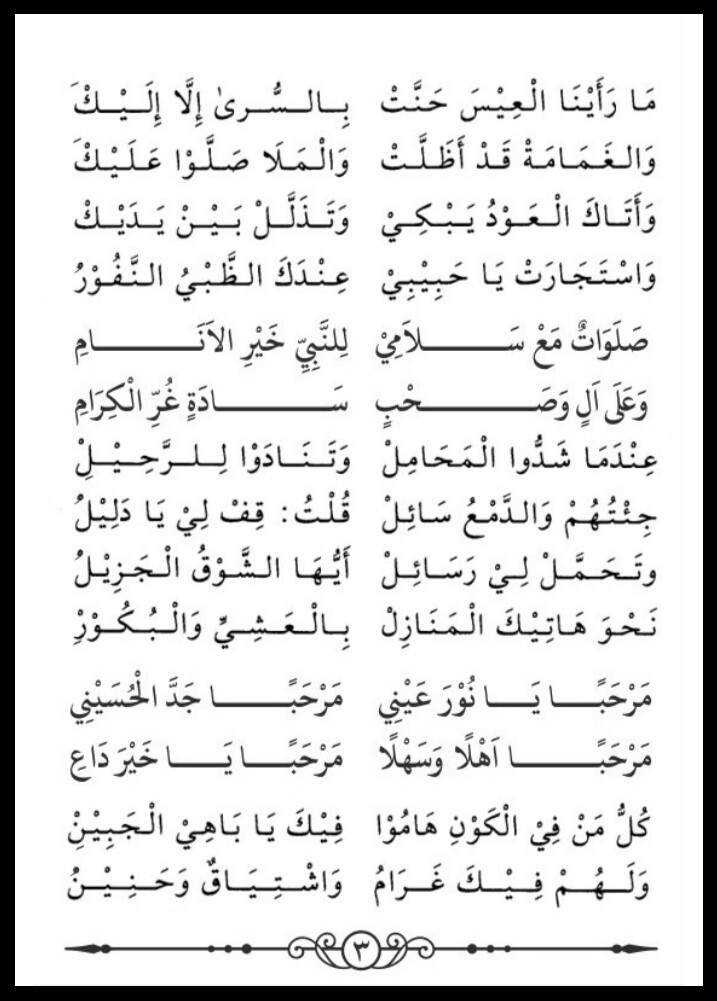 مَا رَأَيْنَا الْعِيْسَ حَنَّتْ بِالسُّرىٰ إِلَّا إِلَيْكْ
وَالْغَمَامَةْ قَدْ أَظَلَّتْ وَالْمَلَا صَلَّوْا عَلَيْكْ
وَأَتَاكَ الْعَوْدُ يَبْكِيْ وَتَذَلَّلْ بَيْنْ يَدَيْكْ
وَاسْتَجَارَتْ يَا حَبِيْبِيْ عِنْدَكَ الظَّبْيُ النَّفُوْرُ
صَلَوَاتٌ مَعْ سَلَامِيْ لِلنَّبِيِّ خَيْرِ الاَنَامِ
وَعَلَى اَلٍ وَصَحْبٍ سَادَةٍ غُرِّ الْكِرَامِ
عِنْدَمَا شَدُّوا الْمَحَامِلْ وَتَنَادَوْا لِلرَّحِيْلِ
جِئْتُهُمْ وَالدَّمْعُ سَائِلْ قُلْتُ: قِفْ لِيْ يَا دَلِيْلُ
وتَحَمَّلْ لِيْ رَسَائِلْ أَيُّهَا الشَّوْقُ الْجَزِيْلُ
نَحْوَ هَاتِيْكَ الْمَنَازِلْ بِالْعَشِيِّ وَالْبُكُوْرِ
مَرْحَبًا يَا نُوْرَ عَيْنِي مَرْحَبًا جَدَّ الْحُسَيْنِي
مَرْحَبًا اَهْلًا وَسَهْلًا مَرْحَبًا يَا خَيْرَ دَاعِ
كُلُّ مَنْ فِيْ الْكَوْنِ هَامُوْا فِيْكَ يَا بَاهِيْ الْجَبِيْنِ
وَلَهُمْ فِيْكَ غَرَامُ وَاشْتِيَاقٌ وَحَنِيْنُ
٣